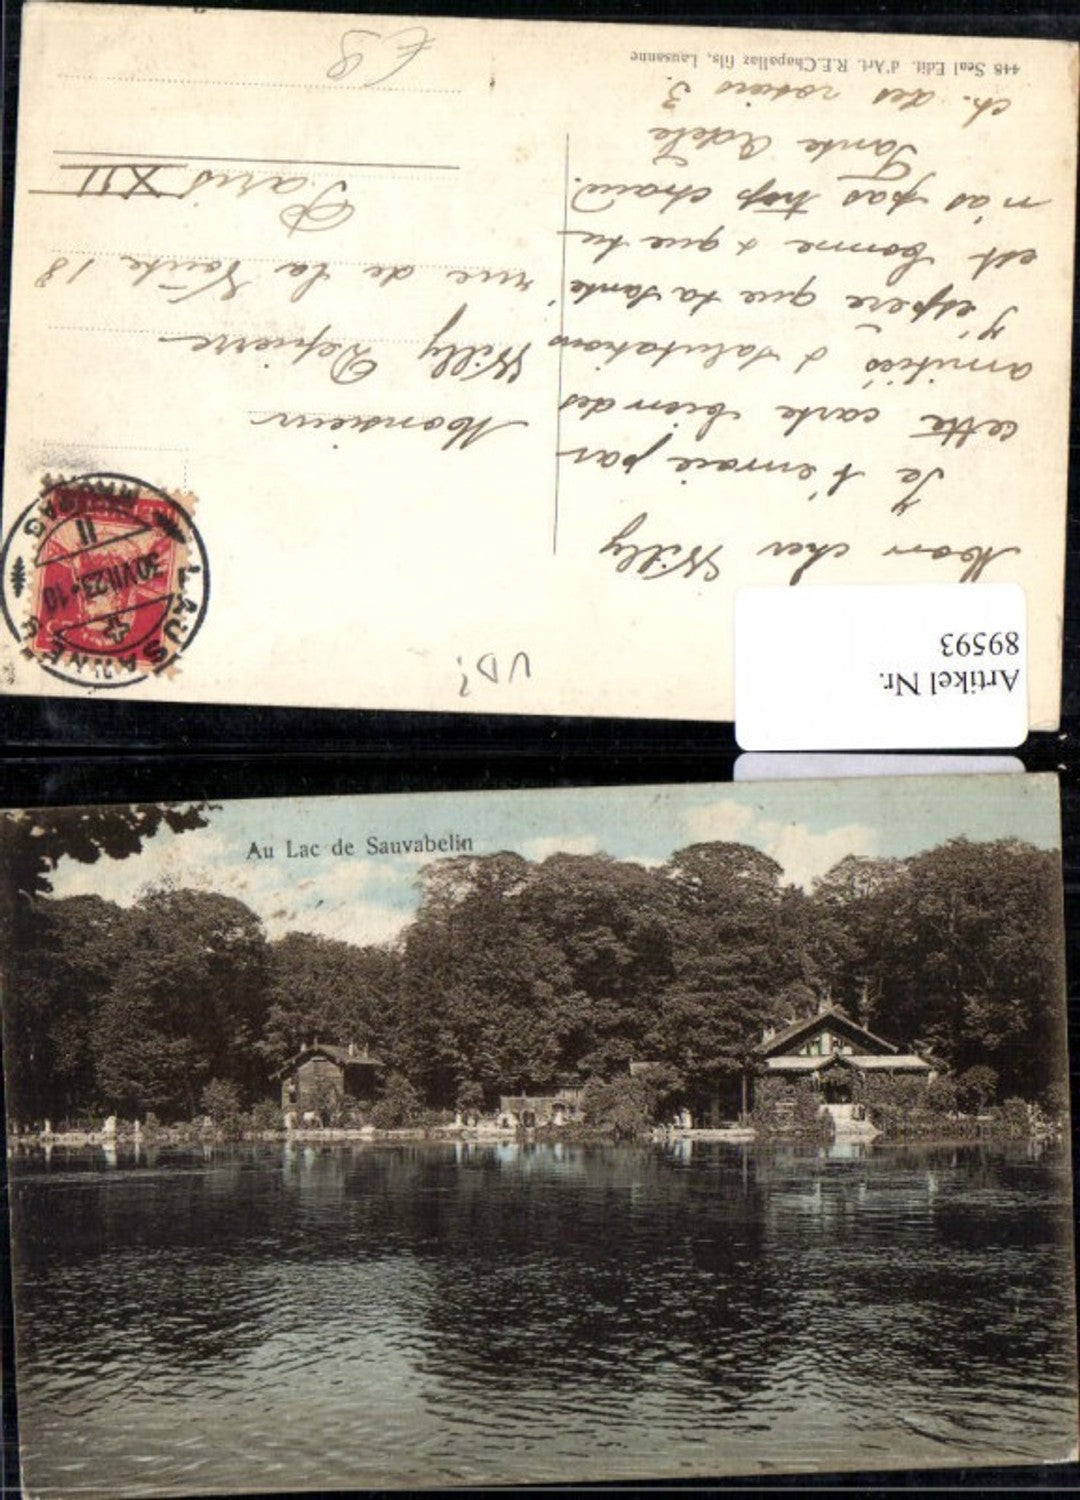 Mon cher Willy
Je t'envoie par
cette carte bien des
amitiés & salutations
J'espère que ta santé
est bonne & que tu
n'as pas trop chaud.
Tante Adèle
ch. des rosiers 3.
448 Seal Edit. d'Art. R.E. Chapallaz fils, Lausanne
Monsieur
Willy Depierre
rue de la Voûte 18
Paris XII
LAUSANNE
30.VII.23-10
II
Artikel Nr.
89593
Au Lac de Sauvabelin